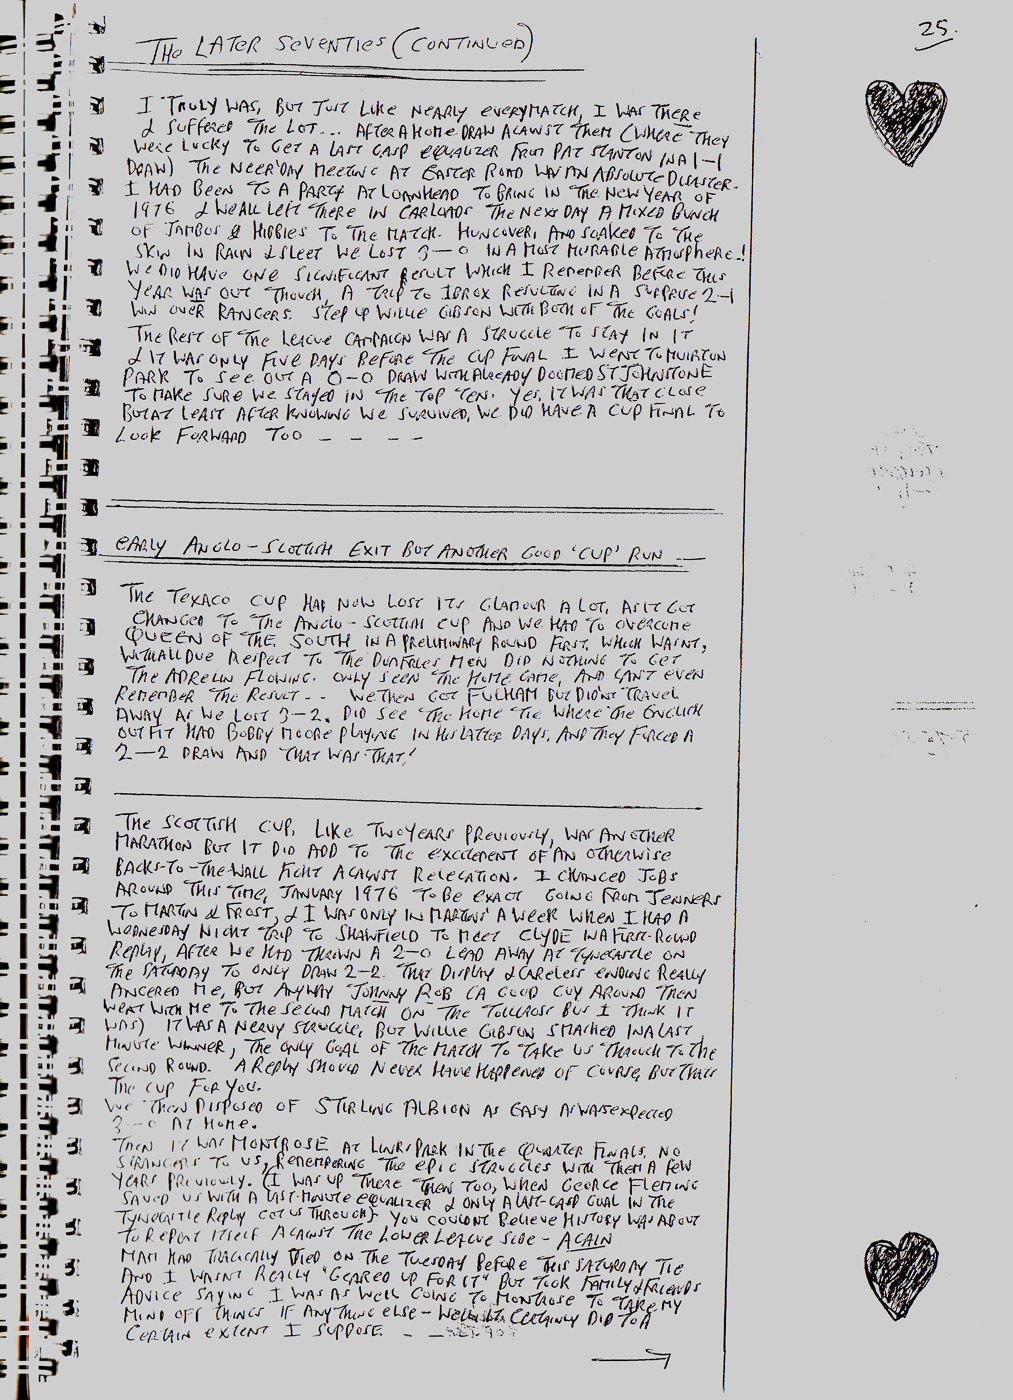 25.
THE LATER SEVENTIES (CONTINUED)
I TRULY WAS, BUT JUST LIKE NEARLY EVERY MATCH, I WAS THERE
& SUFFERED THE LOT... AFTER A HOME DRAW AGAINST THEM (WHERE THEY
WERE LUCKY TO GET A LAST GASP EQUALIZER FROM PAT STANTON IN A 1-1
DRAW) THE NEER'DAY MEETING AT EASTER ROAD WAS AN ABSOLUTE DISASTER.
I HAD BEEN TO A PARTY AT LOANHEAD TO BRING IN THE NEW YEAR OF
1976 & WE ALL LEFT THERE IN CARLOADS THE NEXT DAY A MIXED BUNCH
OF JAMBOS & HIBBIES TO THE MATCH. HUNGOVER, AND SOAKED TO THE
SKIN IN RAIN & SLEET WE LOST 3-0 IN A MOST MURABLE ATMOSPHERE..!
WE DID HAVE ONE SIGNIFICANT RESULT WHICH I REMEMBER BEFORE THIS
YEAR WAS OUT THOUGH, A TRIP TO IBROX RESULTING IN A SUPRISE 2-1
WIN OVER RANGERS. STEP UP WILLIE GIBSON WITH BOTH OF THE GOALS!
THE REST OF THE LEAGUE CAMPAIGN WAS A STRUGGLE TO STAY IN IT
& IT WAS ONLY FIVE DAYS BEFORE THE CUP FINAL I WENT TO MUIRTON
PARK TO SEE OUT A 0-0 DRAW WITH ALREADY DOOMED ST JOHNSTONE
TO MAKE SURE WE STAYED IN THE TOP TEN. YES, IT WAS THAT CLOSE
BUT AT LEAST AFTER KNOWING WE SURVIVED, WE DID HAVE A CUP FINAL TO
LOOK FORWARD TOO - - - -
EARLY ANGLO-SCOTTISH EXIT BUT ANOTHER GOOD 'CUP' RUN
THE TEXACO CUP HAD NOW LOST ITS GLAMOUR A LOT, AS IT GOT
CHANGED TO THE ANGLO-SCOTTISH CUP AND WE HAD TO OVERCOME
QUEEN OF THE SOUTH IN A PRELIMINARY ROUND FIRST, WHICH WASN'T,
WITH ALL DUE RESPECT TO THE DUMFRIES MEN DID NOTHING TO GET
THE ADRELIN FLOWING. ONLY SEEN THE HOME GAME, AND CAN'T EVEN
REMEMBER THE RESULT... WE THEN GOT FULHAM BUT DIDN'T TRAVEL
AWAY AS WE LOST 3-2. DID SEE THE HOME TIE WHERE THE ENGLISH
OUTFIT HAD BOBBY MOORE PLAYING IN HIS LATTER DAYS, AND THEY FORCED A
2-2 DRAW AND THAT WAS THAT!
THE SCOTTISH CUP, LIKE TWO YEARS PREVIOUSLY, WAS ANOTHER
MARATHON BUT IT DID ADD TO THE EXCITEMENT OF AN OTHERWISE
BACKS-TO-THE-WALL FIGHT AGAINST RELEGATION. I CHANGED JOBS
AROUND THIS TIME, JANUARY 1976 TO BE EXACT GOING FROM JENNERS
TO MARTIN & FROST, & I WAS ONLY IN MARTINS' A WEEK WHEN I HAD A
WEDNESDAY NIGHT TRIP TO SHAWFIELD TO MEET CLYDE IN A FIRST-ROUND
REPLAY, AFTER WE HAD THROWN A 2-0 LEAD AWAY AT TYNECASTLE ON
THE SATURDAY TO ONLY DRAW 2-2. THAT DISPLAY & CARELESS ENDING REALLY
ANGERED ME, BUT ANYWAY JOHNNY ROB (A GOOD GUY AROUND THEN
WENT WITH ME TO THE SECOND MATCH ON THE TOLLCROSS BUS I THINK IT
WAS) IT WAS A NERVY STRUGGLE, BUT WILLIE GIBSON SMASHED IN A LAST
MINUTE WINNER, THE ONLY GOAL OF THE MATCH TO TAKE US THROUGH TO THE
SECOND ROUND. A REPLAY SHOULD NEVER HAVE HAPPENED OF COURSE, BUT THATS
THE CUP FOR YOU.
WE THEN DISPOSED OF STIRLING ALBION AS EASY AS WAS EXPECTED
3-0 AT HOME.
THEN IT WAS MONTROSE AT LINKS PARK IN THE QUARTER FINALS. NO
STRANGERS TO US, REMEMBERING THE EPIC STRUGGLES WITH THEM A FEW
YEARS PREVIOUSLY. (I WAS UP THERE THEN TOO, WHEN GEORGE FLEMING
SAVED US WITH A LAST-MINUTE EQUALIZER & ONLY A LAST-GASP GOAL IN THE
TYNECASTLE REPLAY GOT US THROUGH) YOU COULDN'T BELIEVE HISTORY WAS ABOUT
TO REPEAT ITSELF AGAINST THE LOWER LEAGUE SIDE - AGAIN
MAM HAD TRAGICALLY DIED ON THE TUESDAY BEFORE THIS SATURDAY TIE
AND I WASN'T REALLY "GEARED UP FOR IT" BUT TOOK FAMILY & FRIENDS
ADVICE SAYING I WAS AS WELL GOING TO MONTROSE TO TAKE MY
MIND OFF THINGS IF ANYTHING ELSE - WELL CERTAINLY DID TO A
CERTAIN EXTENT I SUPPOSE - -